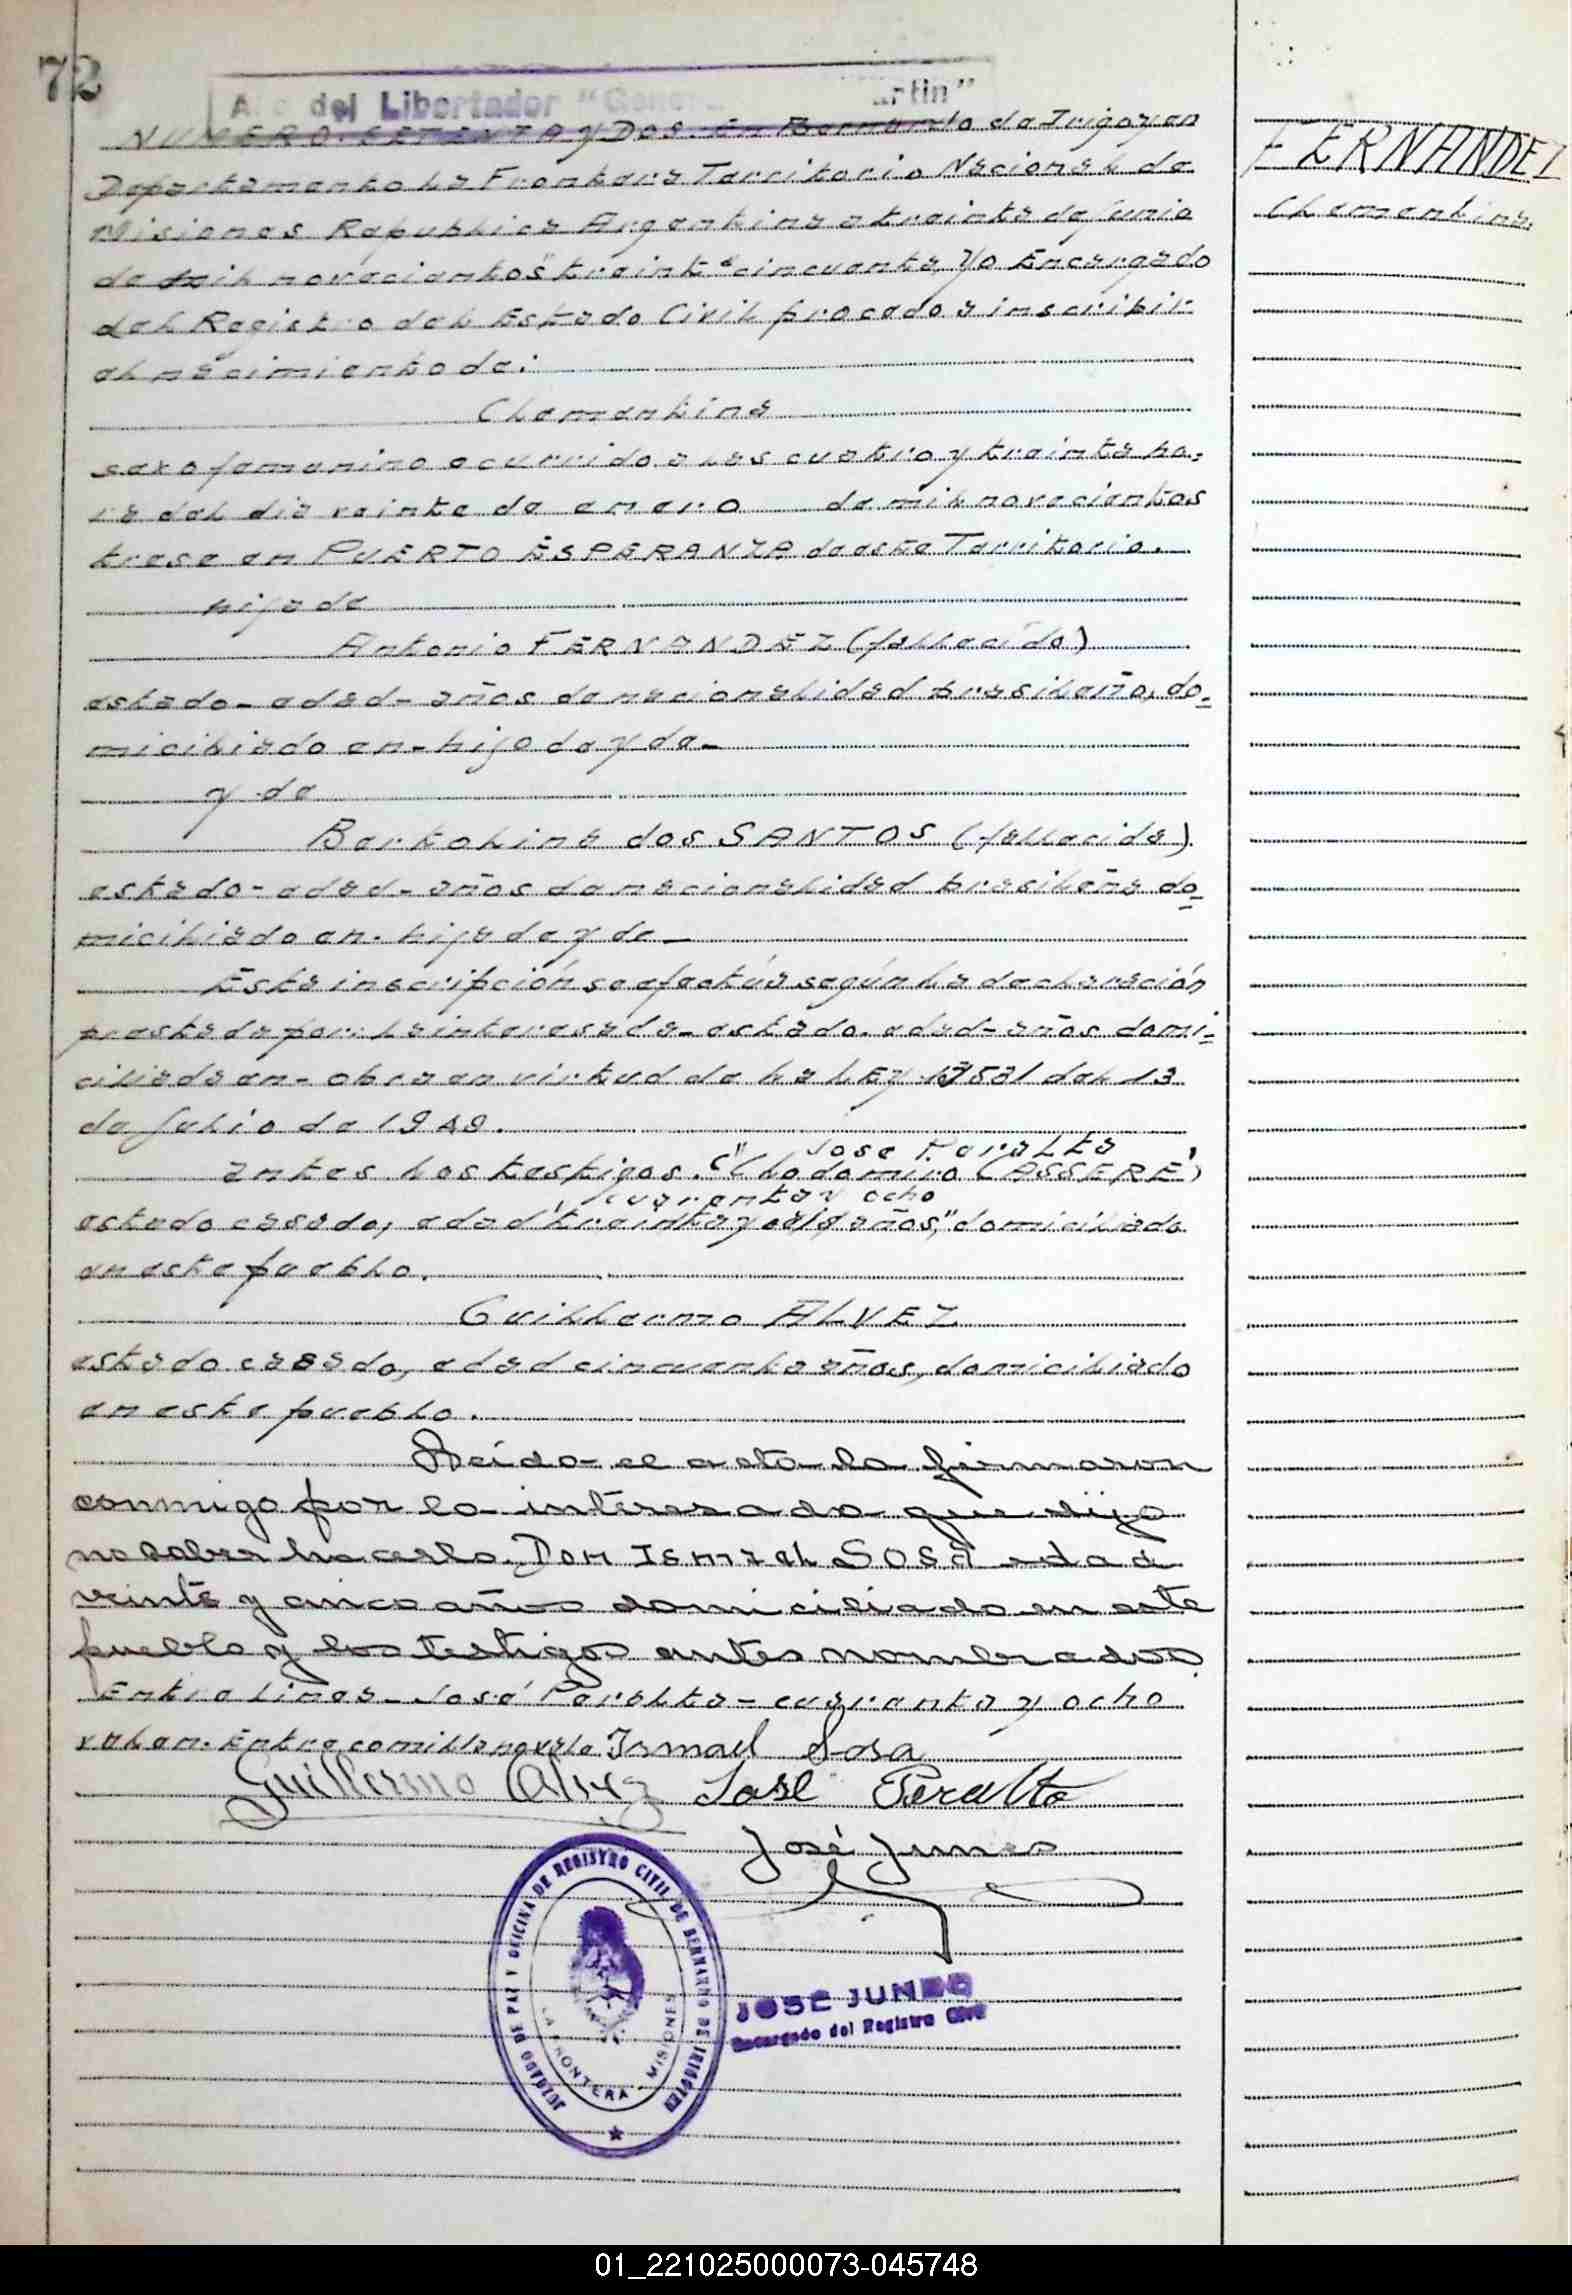 72
Año del Libertador "General Martin"
NUMERO SETENTA y DOS. En Bernardo de Irigoyen
FERNANDEZ
Departamento La Frontera Territorio Nacional de
Clementina.
Misiones Republica Argentina a treinta de junio
de mil novecientos "treinta" cincuenta, Yo Encargado
del Registro del Estado Civil procedo a inscribir
el nacimiento de:
Clementina
sexo femenino ocurrido a las cuatro y treinta ho-
ra del dia veinte de enero de mil novecientos
trese en PUERTO ESPERANZA de este Territorio.
hija de
Antonio FERNANDEZ (fallecido)
estado- edad- años de nacionalidad brasileño, do-
miciliado en- hijo de y de-
y de
Bertolina dos SANTOS (fallecida)
estado- edad- años de nacionalidad brasileña do-
miciliado en- hija de y de-
Esta inscripción se efectúa según la declaración
prestada por: La interesada- estado- edad- años domi-
ciliada en- obra en virtud de la LEy 13531 del 13
de Julio de 1949.
Jose Peralta
antes los testigos. "Clodomiro CASSERE"
cuarenta y ocho
estado casado, edad "treinta y seis años," domiciliado
en este pueblo.
Guillermo ALVEZ
estado casado, edad cincuenta años, domiciliado
en este pueblo.
Leída el acta la firmaron
conmigo por la interesada que dijo
no saber hacerlo. Don Ismael SOSA edad
veinte y cinco años domiciliado en este
pueblo y los testigos antes nombrados.
Entre lineas- José Peralta- cuarenta y ocho
valen. Entre comilla no vale Ismael Sosa
Guillermo Alvez José Peralta
José Junes
JUZGADO DE PAZ Y OFICINA DE REGISTRO CIVIL DE BERNARDO DE IRIGOYEN
LA FRONTERA - MISIONES
JOSE JUNES
Encargado del Registro Civil
01_221025000073-045748